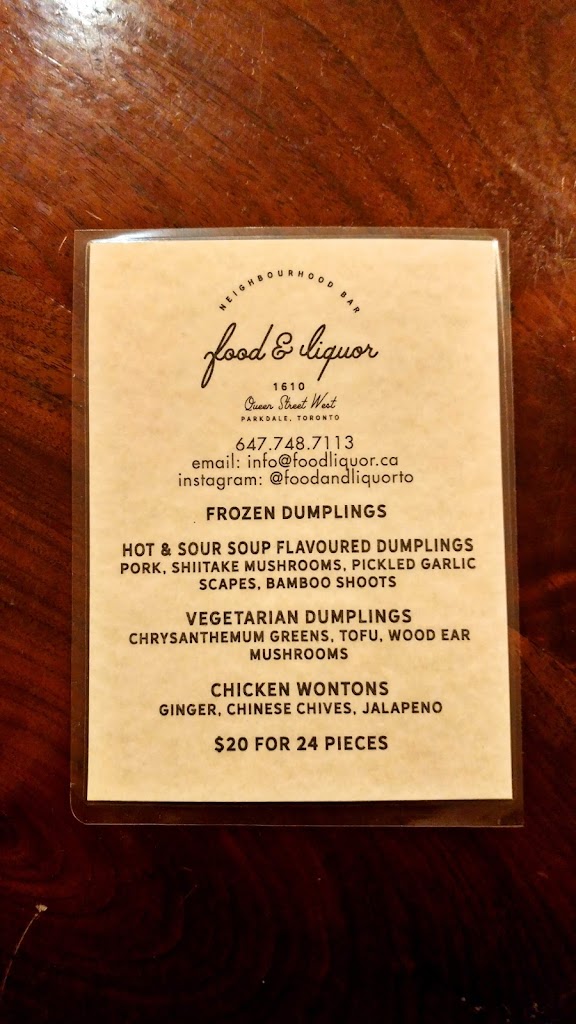 NEIGHBOURHOOD BAR
food & liquor
1610
Queen Street West
PARKDALE, TORONTO
647.748.7113
email: info@foodliquor.ca
instagram: @foodandliquorto
FROZEN DUMPLINGS
HOT & SOUR SOUP FLAVOURED DUMPLINGS
PORK, SHIITAKE MUSHROOMS, PICKLED GARLIC
SCAPES, BAMBOO SHOOTS
VEGETARIAN DUMPLINGS
CHRYSANTHEMUM GREENS, TOFU, WOOD EAR
MUSHROOMS
CHICKEN WONTONS
GINGER, CHINESE CHIVES, JALAPENO
$20 FOR 24 PIECES